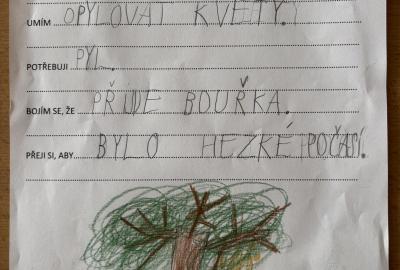 UMÍM OPYLOVAT KVĚTY.
POTŘEBUJI PYL.
BOJÍM SE, ŽE PŘIJDE BOUŘKA.
PŘEJI SI, ABY BYLO HEZKÉ POČASÍ.